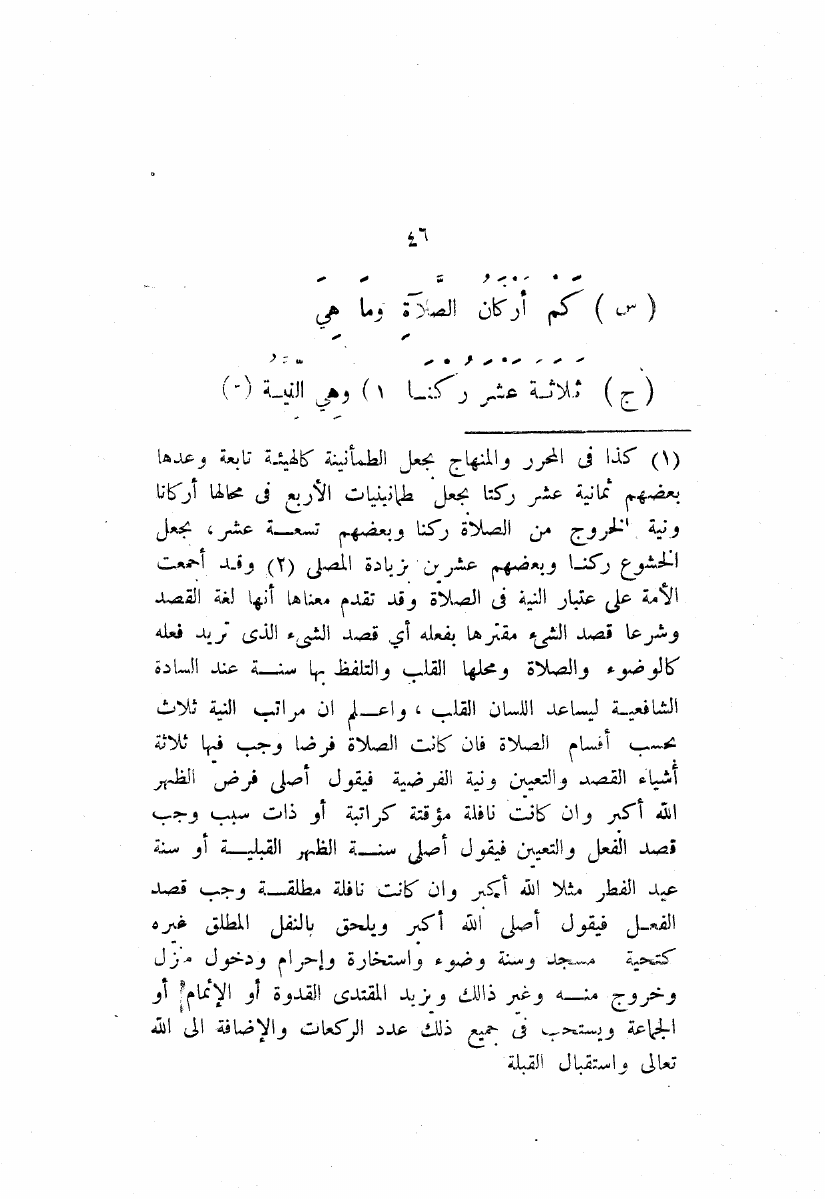 ٤٦
(س) كم أركان الصلاة وما هي
(ج) ثلاثة عشر ركنا (١) وهي النية (٢)
(١) كذا فى المحرر والمنهاج بجعل الطمأنينة كالهيئة تابعة وعدها
بعضهم ثمانية عشر ركنا بجعل طمانينيات الأربع فى محالها أركانا
ونية الخروج من الصلاة ركنا وبعضهم تسعــة عشر، بجعل
الخشوع ركنــا وبعضهم عشرين بزيادة المصلى (٢) وقـد أجمعت
الأمة على عتبار النية فى الصلاة وقد تقدم معناها أنها لغة القصد
وشرعا قصد الشيء مقترها بفعله أي قصد الشيء الذى تريد فعله
كالوضوء والصلاة ومحلها القلب والتلفظ بها سنــة عند السادة
الشافعيـة ليساعد اللسان القلب ، واعــلم ان مراتب النية ثلاث
بحسب أقسام الصلاة فان كانت الصلاة فرضا وجب فيها ثلاثة
أشياء القصد والتعيين ونية الفرضية فيقول أصلى فرض الظهر
الله أكبر وان كانت نافلة مؤقتة كراتبة أو ذات سبب وجب
قصد الفعل والتعيين فيقول أصلي سنــة الظهر القبليــة أو سنة
عيد الفطر مثلا الله أكبر وان كانت نافلة مطلقــة وجب قصد
الفعـل فيقول أصلى الله أكبر ويلحق بالنفل المطلق غيره
كتحية مسجد وسنة وضوء واستخارة وإحرام ودخول منزل
وخروج منــه وغير ذالك ويزيد المقتدى القدوة أو الإئتمام أو
الجماعة ويستحب فى جميع ذلك عدد الركعات والإضافة الى الله
تعالى واستقبال القبلة